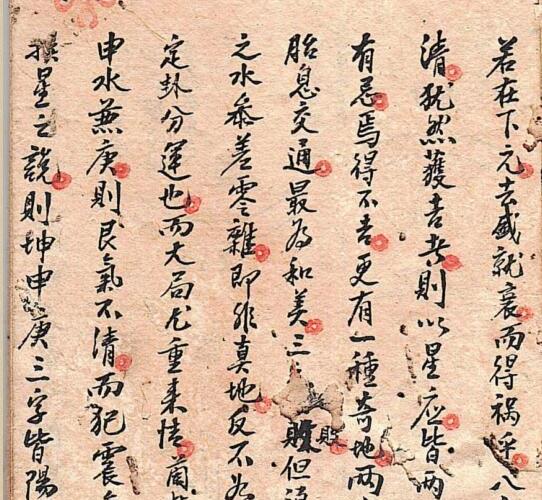 若在下元去盛就衰而得禍采八
清猶然獲吉者則以星應皆兩
有忌焉得不吉更有一種奇地兩
胎息交通最為和美三般但
之水叅差零雜即非真地反不為
定卦分運也而大局尤重来情
申水兼庚則艮氣不清而犯震
挨星之說則坤申庚三字皆陽